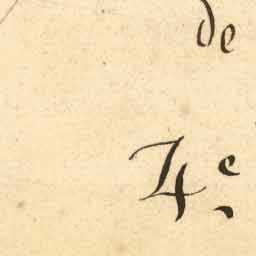 de
4e.